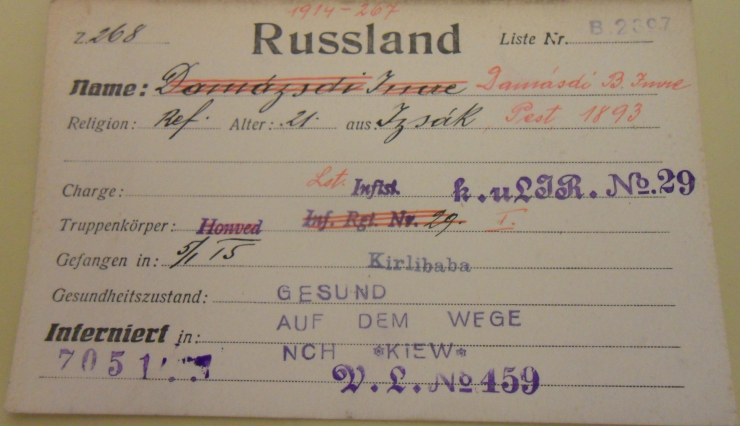 1914-267
Z. 268 Russland Liste Nr. B.2307
Name: Damázsdi Imre Damásdi B. Imre
Religion: Ref. Alter: 21. aus: Izsák Pest 1893
Charge: Lst. Inftst. k.uLIR. No. 29
Truppenkörper: Honved Inf. Rgt. Nr. 29. I.
Gefangen in: 5/I 15 Kirlibaba
Gesundheitszustand: GESUND
Interniert in: AUF DEM WEGE
NCH *KIEW*
7051
V. L. No 459